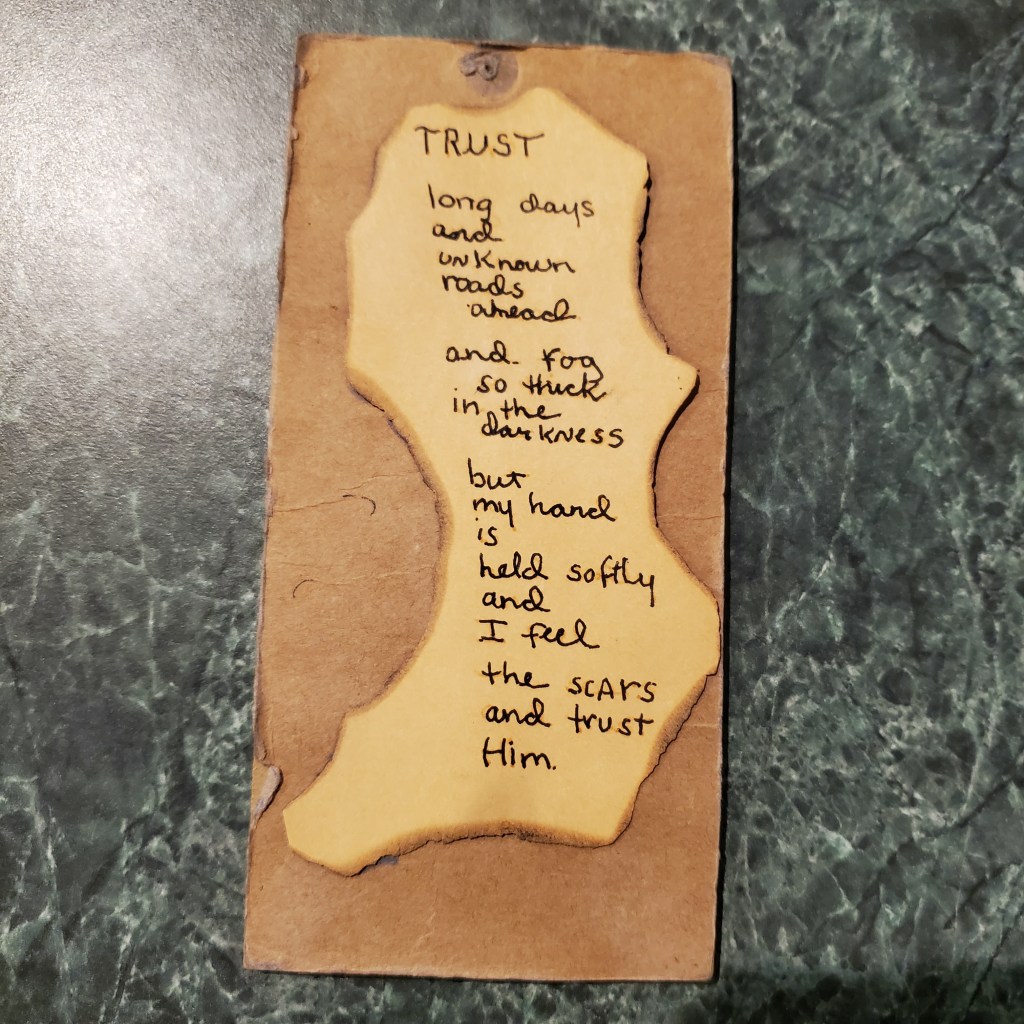 TRUST
long days
and
unknown
roads
ahead
and fog
so thick
in the
darkness
but
my hand
is
held softly
and
I feel
the scars
and trust
Him.